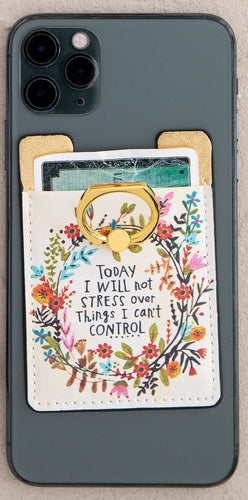 TODAY
I WILL not
STRESS over
THINGS I can't
CONTROL